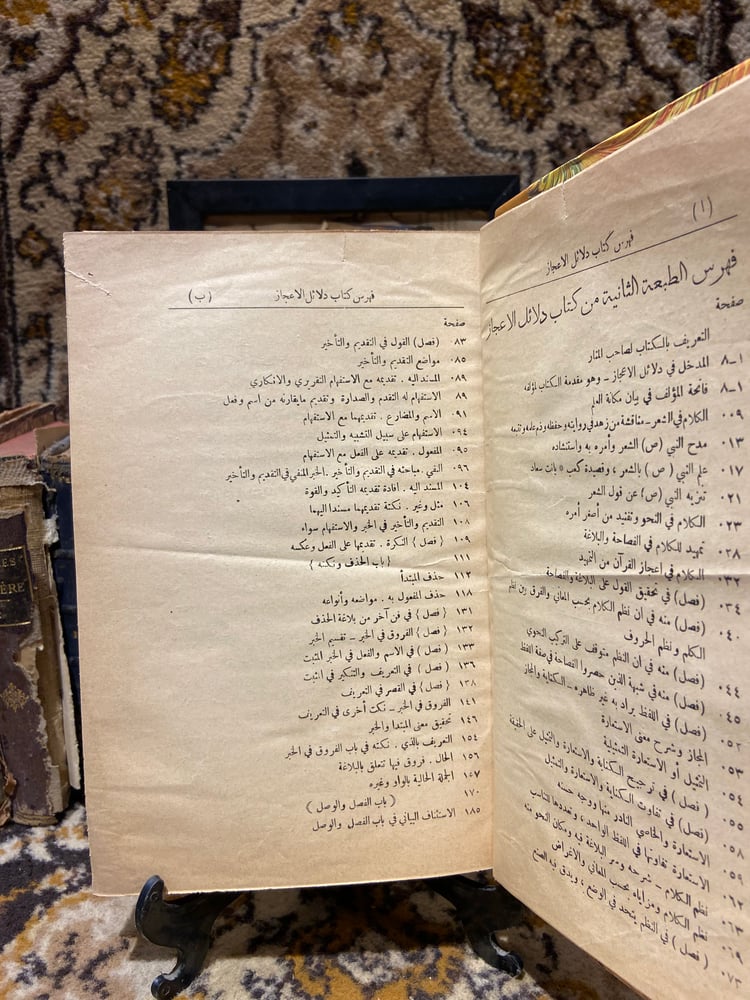 (ا)
فهرس كتاب دلائل الاعجاز
فهرس الطبعة الثانية من كتاب دلائل الاعجاز
صفحة
التعريف بالكتاب لصاحب المنار
ا-٨ المدخل في دلائل الاعجاز - وهو مقدمة الكتاب لمؤلفه
١-٨ فاتحة المؤلف في بيان مكانة العلم
٠٠٩ الكلام في الشعر - مناقشة من زهد في روايته وحفظه وذم علمه وتتبعه
٠١٣ مدح النبي (ص) الشعر وأمره به واستنشاده
٠١٧ علم النبي (ص) بالشعر، وقصيدة كعب « بانت سعاد
٠٢١ تنزيه النبي (ص) عن قول الشعر
٠٢٣ الكلام في النحو وتفنيد من أصغر أمره
٠٢٨ تمهيد للكلام في الفصاحة والبلاغة
٠٣٢ الكلام في اعجاز القرآن من التمهيد
٠٣٤ (فصل) في تحقيق القول على البلاغة والفصاحة
٠٤٠ (فصل) منه في أن نظم الكلام بحسب المعاني والفرق بين نظم
الكلم ونظم الحروف
٠٤٤ (فصل) منه في أن النظم متوقف على التركيب النحوي
٠٤٥ (فصل) منه في شبهة الذين حصروا الفصاحة في صفة اللفظ
٠٥٢ (فصل) في اللفظ يراد به غير ظاهره - الكناية والمجاز
٠٥٣ المجاز وشرح معنى الاستعارة
٠٥٤ التمثيل أو الاستعارة التمثيلية
٠٥٥ (فصل) في ترجيح الكناية والاستعارة والتمثيل على الحقيقة
٠٥٨ (فصل) في تفاوت الكناية والاستعارة والتمثيل
٠٥٩ الاستعارة والخاصي النادر منها ووجه حسنه
٠٦٢ الاستعارة تفاوتها في اللفظ الواحد، وتعددها للتناسب
٠٦٣ نظم الكلام - شرحه وسر البلاغة فيه ومكان النحو منه
٠٦٩ نظم الكلام ومزاياه بحسب المعاني والأغراض
٠٧٣ (فصل) في النظم يتحد في الوضع، ويدق فيه الصنع
فهرس كتاب دلائل الاعجاز (ب)
صفحة
٠٨٣ (فصل) القول في التقديم والتأخير
٠٨٥ مواضع التقديم والتأخير
٠٨٩ المسند اليه . تقديمه مع الاستفهام التقريري والانكاري
٠٨٩ الاستفهام له التقدم والصدارة وتقديم مايقارنه من اسم وفعل
٠٩١ الاسم والمضارع . تقديمهما مع الاستفهام
٠٩٤ الاستفهام على سبيل التشبيه والتمثيل
٠٩٥ المفعول . تقديمه على الفعل مع الاستفهام
٠٩٦ النفي . مباحثه في التقديم والتأخير . الخبر المنفي في التقديم والتأخير
١٠٤ المسند اليه . افادة تقديمه التأكيد والقوة
١٠٦ مثل وغير . نكتة تقديمهما مسندا اليهما
١٠٨ التقديم والتأخير في الخبر والاستفهام سواء
١٠٩ ( فصل ) النكرة . تقديمها على الفعل وعكسه
١١١ ( باب الحذف ونكته )
١١٢ حذف المبتدأ
١١٨ حذف المفعول به . مواضعه وأنواعه
١٣١ ( فصل ) في فن آخر من بلاغة الحذف
١٣٢ ( فصل ) الفروق في الخبر - تقسيم الخبر
١٣٣ ( فصل ) في الاسم والفعل في الخبر المثبت
١٣٦ ( فصل ) في التعريف والتنكير في المثبت
١٣٨ ( فصل ) في القصر في التعريف
١٤١ الفروق في الخبر - نكت أخرى في التعريف
١٤٦ تحقيق معنى المبتدا والخبر
١٥٤ التعريف بالذي . نكتته في باب الفروق في الخبر
١٥٦ الحال . فروق فيها تتعلق بالبلاغة
١٥٧ الجملة الحالية بالواو وغيره
١٧٠ ( باب الفصل والوصل )
١٨٥ الاستئناف البياني في باب الفصل والوصل